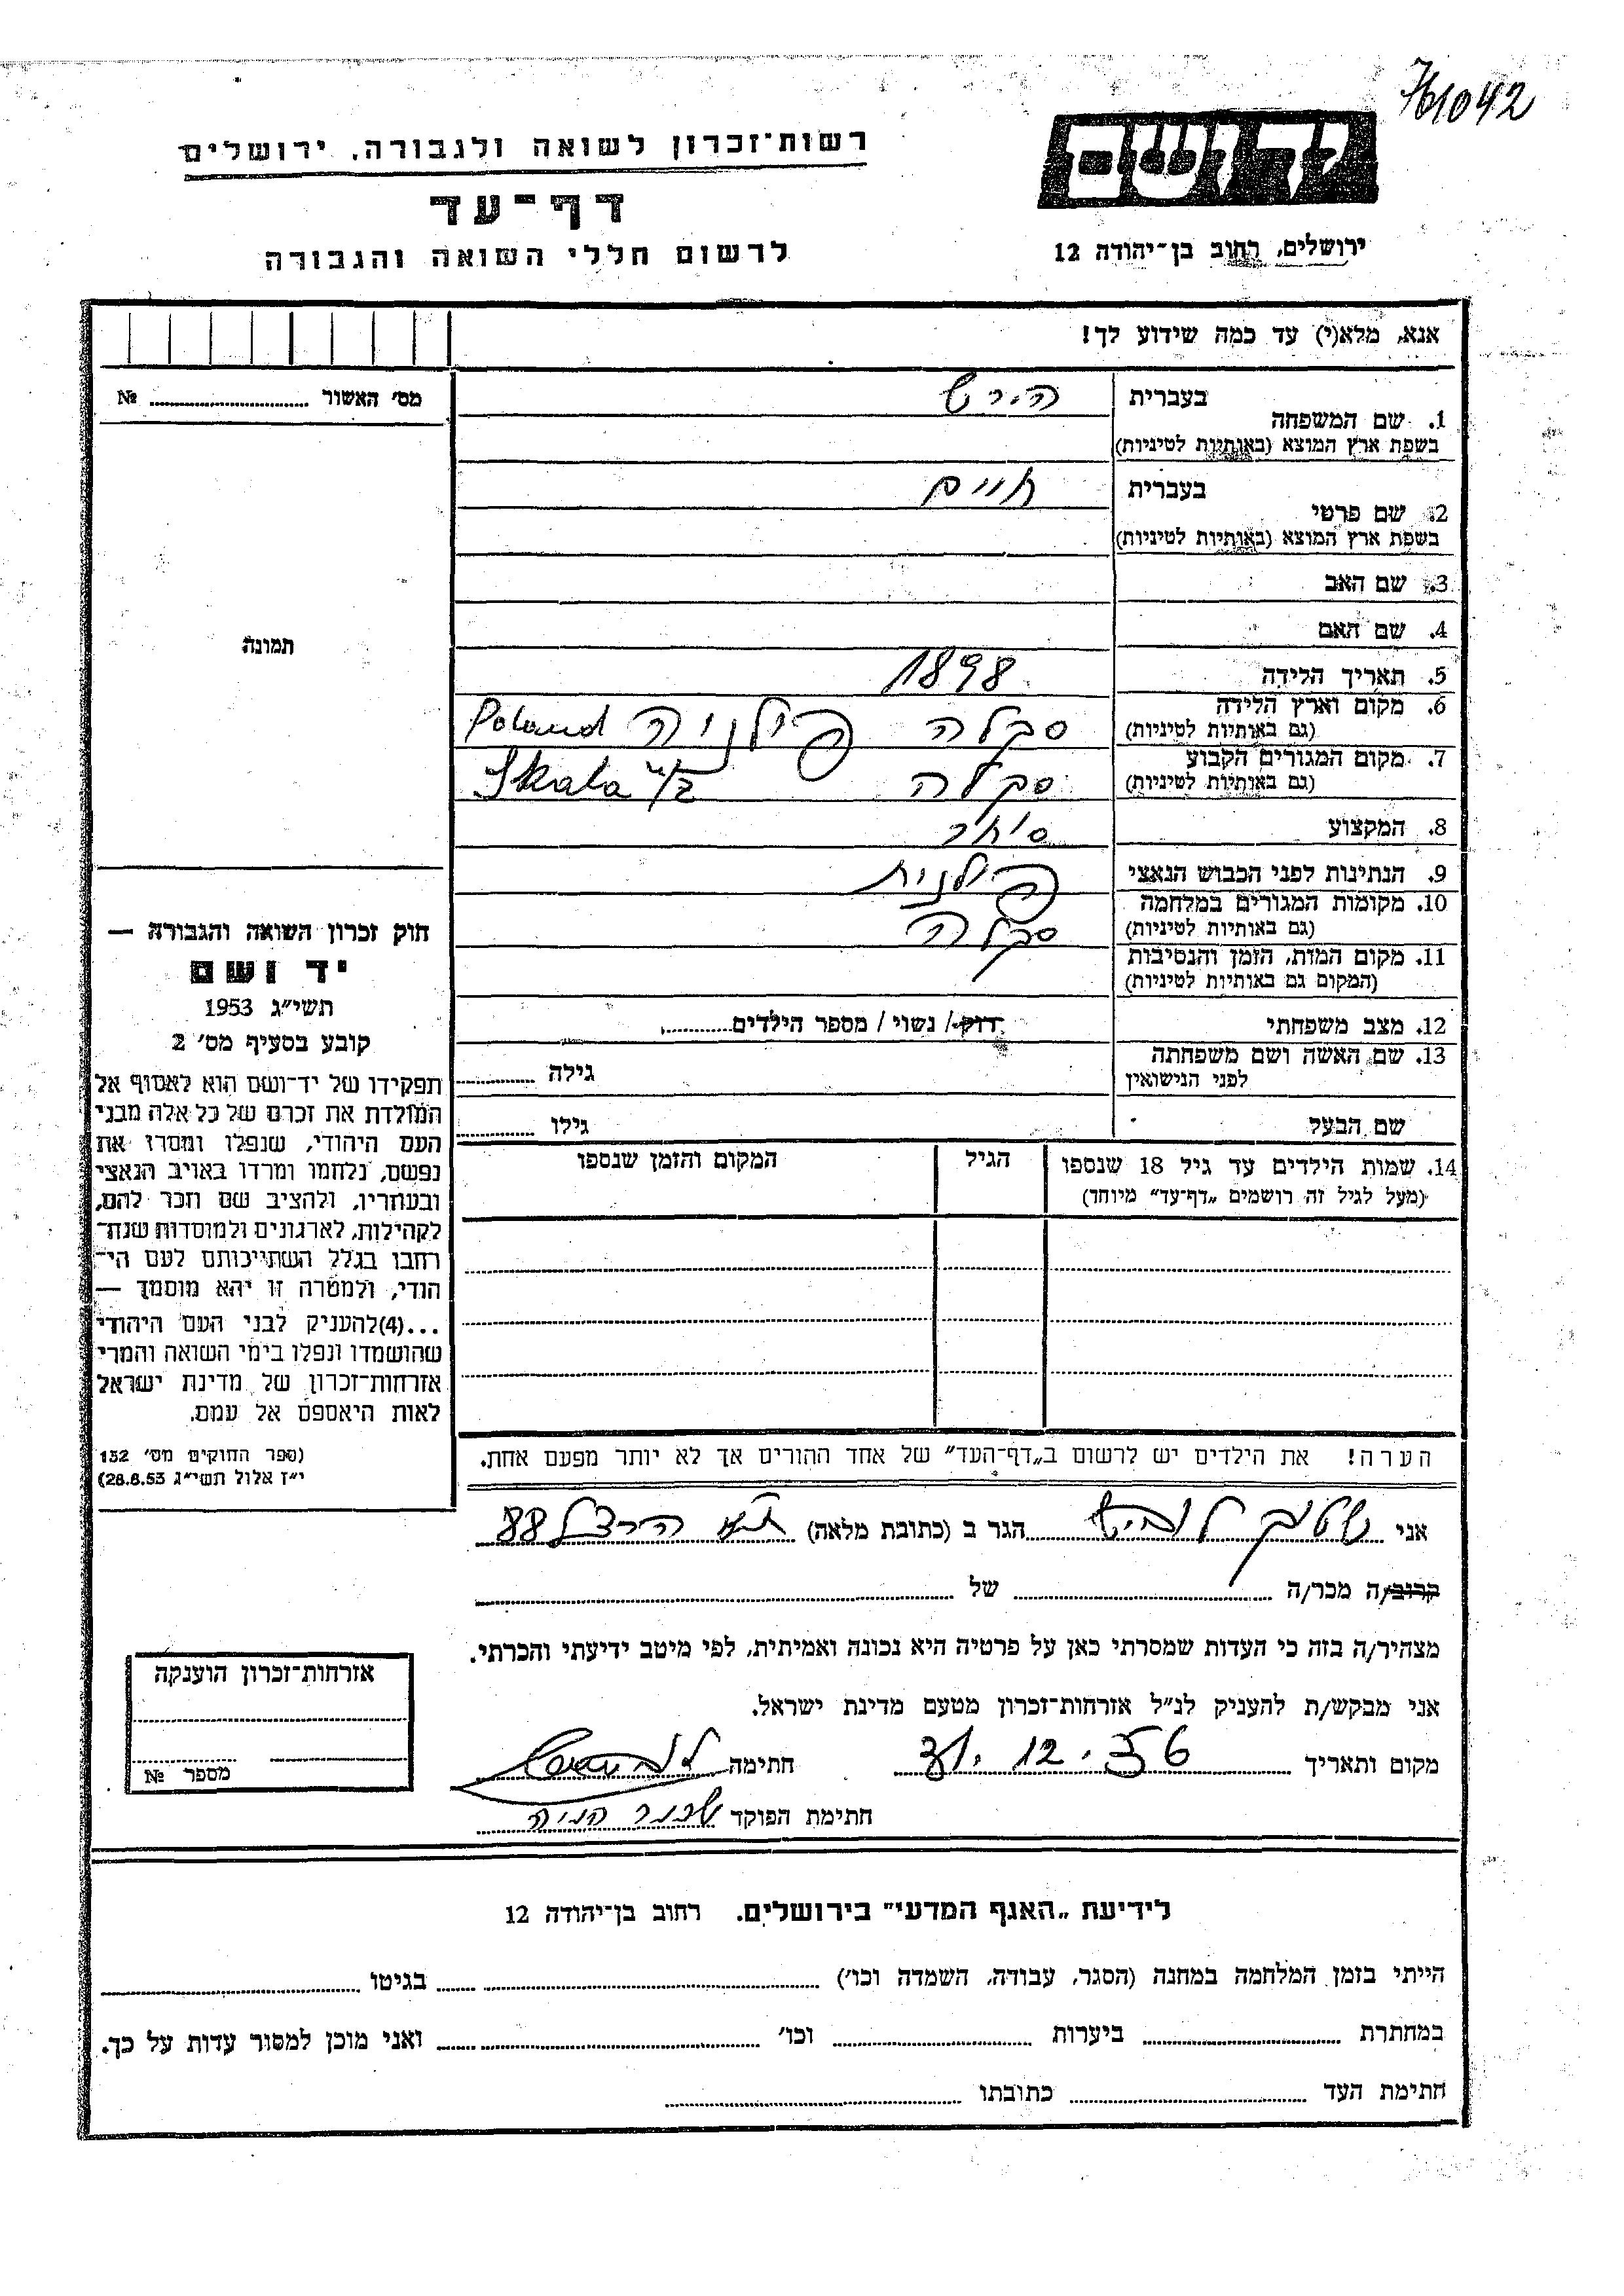 761042
רשות־זכרון לשואה ולגבורה, ירושלים
יד ושם
דף־עד
לרשום חללי השואה והגבורה
ירושלים, רחוב בן־יהודה 12
אנא, מלא(י) עד כמה שידוע לך!
מס׳ האשור ........ №
1. שם המשפחה
בעברית הירש
בשפת ארץ המוצא (באותיות לטיניות)
2. שם פרטי
בעברית חיים
בשפת ארץ המוצא (באותיות לטיניות)
3. שם האב
4. שם האם
תמונה
5. תאריך הלידה 1898
6. מקום וארץ הלידה סקלה פולניה Poland
(גם באותיות לטיניות)
7. מקום המגורים הקבוע סקלה Skala n/Z
(גם באותיות לטיניות)
8. המקצוע סוחר
9. הנתינות לפני הכבוש הנאצי פולנית
10. מקומות המגורים במלחמה סקלה
(גם באותיות לטיניות)
11. מקום המות, הזמן והנסיבות
(המקום גם באותיות לטיניות)
12. מצב משפחתי רווק / נשוי / מספר הילדים........
13. שם האשה ושם משפחתה גילה ........
לפני הנישואין
שם הבעל גילו ........
14. שמות הילדים עד גיל 18 שנספו הגיל המקום והזמן שנספו
(מעל לגיל זה רושמים „דף־עד״ מיוחד)
חוק זכרון השואה והגבורה —
יד ושם
תשי״ג 1953
קובע בסעיף מס׳ 2
תפקידו של יד־ושם הוא לאסוף אל
המולדת את זכרם של כל אלה מבני
העם היהודי, שנפלו ומסרו את
נפשם, נלחמו ומרדו באויב הנאצי
ובעוזריו, ולהציב שם וזכר להם,
לקהילות, לארגונים ולמוסדות שנח־
רבו בגלל השתייכותם לעם הי־
הודי, ולמטרה זו יהא מוסמך —
...(4)להעניק לבני העם היהודי
שהושמדו ונפלו בימי השואה והמרי
אזרחות־זכרון של מדינת ישראל
לאות היאספם אל עמם.
(ספר החוקים מס׳ 132
י״ז אלול תשי״ג 28.8.53)
הערה! את הילדים יש לרשום ב„דף־העד״ של אחד ההורים אך לא יותר מפעם אחת.
אני ........ הגר ב (כתובת מלאה) ת״א הרצל 88
קרוב/ה מכר/ה ........ של ........
מצהיר/ה בזה כי העדות שמסרתי כאן על פרטיה היא נכונה ואמיתית, לפי מיטב ידיעתי והכרתי.
אני מבקש/ת להעניק לנ״ל אזרחות־זכרון מטעם מדינת ישראל.
מקום ותאריך 31.12.56 חתימה
חתימת הפוקד
אזרחות־זכרון הוענקה
מספר №
לידיעת „האגף המדעי״ בירושלים. רחוב בן־יהודה 12
הייתי בזמן המלחמה במחנה (הסגר, עבודה, השמדה וכו׳) ........ בגיטו ........
במחתרת ........ ביערות ........ וכו׳ ........ ואני מוכן למסור עדות על כך.
חתימת העד ........ כתובתו ........